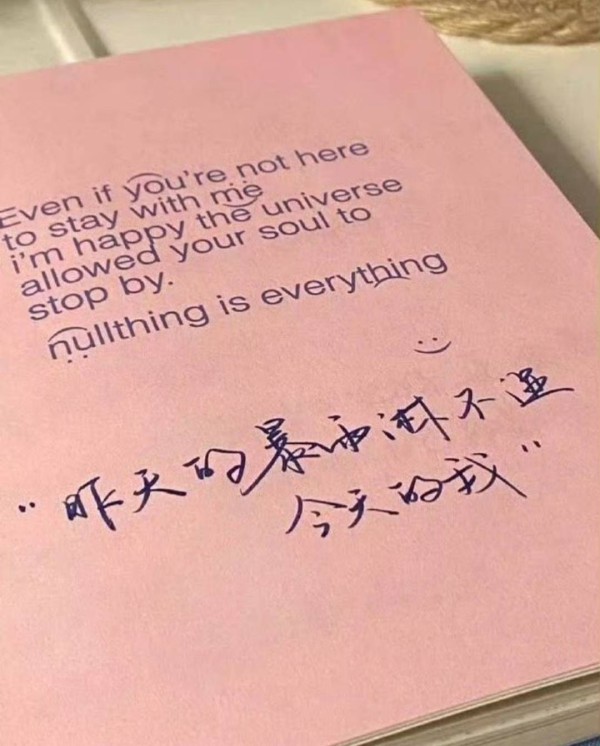 Even if you're not here
to stay with me
i'm happy the universe
allowed your soul to
stop by.
nullthing is everything
:)
"昨天的暴雨淋不湿
今天的我"